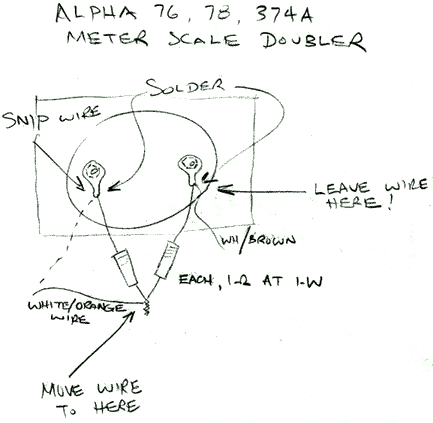 ALPHA 76, 78, 374A
METER SCALE DOUBLER
SOLDER
SNIP WIRE
LEAVE WIRE
HERE!
WH/BROWN
EACH, 1-Ω AT 1-W
WHITE/ORANGE
WIRE
MOVE WIRE
TO HERE